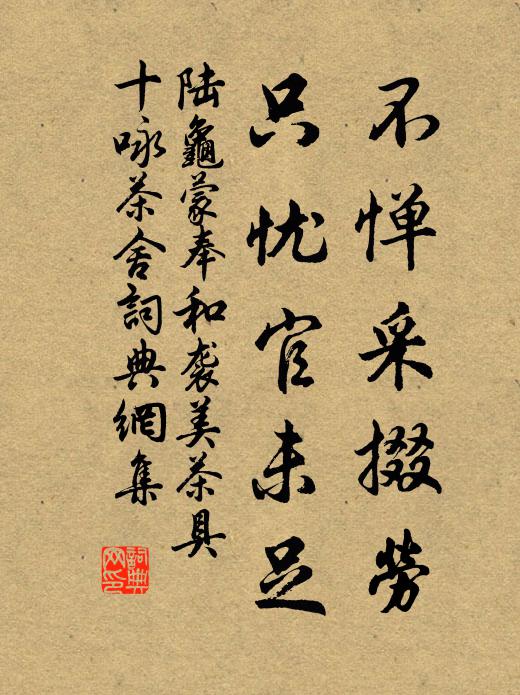 不惮采掇劳
只忧官未足
陆龜蒙奉和袭美茶具
十咏茶舍詞典網集
詞典
网印